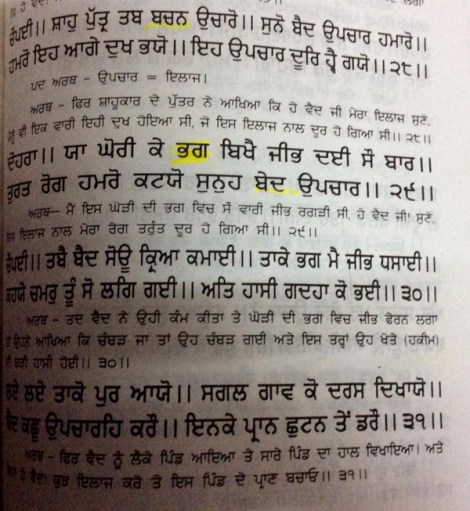 ਚੌਪਈ।। ਸਾਹੁ ਪੁੱਤ੍ਰ ਤਬ ਬਚਨ ਉਚਾਰੋ।। ਸੁਨੋ ਬੈਦ ਉਪਚਾਰ ਹਮਾਰੋ।।
ਹਮਰੋ ਇਹ ਆਗੇ ਦੁਖ ਭਯੋ।। ਇਹ ਉਪਚਾਰ ਦੂਰਿ ਹ੍ਵੈ ਗਯੋ।।੨੮।।
ਪਦ ਅਰਥ - ਉਪਚਾਰ = ਇਲਾਜ।
ਅਰਥ - ਫਿਰ ਸ਼ਾਹੂਕਾਰ ਦੇ ਪੁੱਤਰ ਨੇ ਆਖਿਆ ਕਿ ਹੇ ਵੈਦ ਜੀ ਮੇਰਾ ਇਲਾਜ ਸੁਣੋ,
ਵੀ ਇਕ ਵਾਰੀ ਇਹੀ ਦੁਖ ਹੋਇਆ ਸੀ, ਜੋ ਇਸ ਇਲਾਜ ਨਾਲ ਦੂਰ ਹੋ ਗਿਆ ਸੀ।।੨੮।।
ਦੋਹਰਾ।। ਯਾ ਘੋਰੀ ਕੇ ਭਗ ਬਿਖੈ ਜੀਭ ਦਈ ਸੌ ਬਾਰ।।
ਤੁਰਤ ਰੋਗ ਹਮਰੋ ਕਟਯੋ ਸੁਨਹੁ ਬੇਦ ਉਪਚਾਰ।।੨੯।।
ਅਰਥ- ਮੈਂ ਇਸ ਘੋੜੀ ਦੀ ਭਗ ਵਿਚ ਸੌ ਵਾਰੀ ਜੀਭ ਰਗੜੀ ਸੀ, ਹੇ ਵੈਦ ਜੀ! ਸੁਣੋ,
ਇਲਾਜ ਨਾਲ ਮੇਰਾ ਰੋਗ ਤਰੁੰਤ ਦੂਰ ਹੋ ਗਿਆ ਸੀ।। ੨੯।।
ਚੌਪਈ।। ਤਬੈ ਬੈਦ ਸੋਊ ਕ੍ਰਿਆ ਕਮਾਈ।। ਤਾਕੇ ਭਗ ਮੈ ਜੀਭ ਧਸਾਈ।।
ਕਹਯੋ ਚਮਰੁ ਤੂੰ ਸੋ ਲਗਿ ਗਈ।। ਅਤਿ ਹਾਸੀ ਗਦਹਾ ਕੋ ਭਈ।।੩੦।।
ਅਰਥ - ਤਦ ਵੈਦ ਨੇ ਉਹੀ ਕੰਮ ਕੀਤਾ ਤੇ ਘੋੜੀ ਦੀ ਭਗ ਵਿਚ ਜੀਭ ਫੇਰਨ ਲਗਾ
ਤਾਂ ਉਹਨੇ ਆਖਿਆ ਕਿ ਚੰਬੜ ਜਾ ਤਾਂ ਉਹ ਚੰਬੜ ਗਈ ਅਤੇ ਇਸ ਤਰ੍ਹਾਂ ਉਹ ਖੋਤੇ (ਹਕੀਮ)
ਦੀ ਬੜੀ ਹਾਸੀ ਹੋਈ।।੩੦।।
ਲਏ ਲਏ ਤਾਕੋ ਪੁਰ ਆਯੋ।। ਸਗਲ ਗਾਵ ਕੋ ਦਰਸ ਦਿਖਾਯੋ।।
ਬੈਦ ਕਛੂ ਉਪਚਾਰਹਿ ਕਰੌ।। ਇਨਕੇ ਪ੍ਰਾਨ ਛੁਟਨ ਤੇਂ ਡਰੌ।।੩੧।।
ਅਰਥ - ਫਿਰ ਵੈਦ ਨੂੰ ਲੈਕੇ ਪਿੰਡ ਆਇਆ ਤੇ ਸਾਰੇ ਪਿੰਡ ਦਾ ਹਾਲ ਵਿਖਾਇਆ। ਅਤੇ
ਹੇ ਵੈਦ! ਕੁਝ ਇਲਾਜ ਕਰੋ ਤੇ ਇਸ ਪਿੰਡ ਦੇ ਪ੍ਰਾਣ ਬਚਾਓ।।੩੧।।